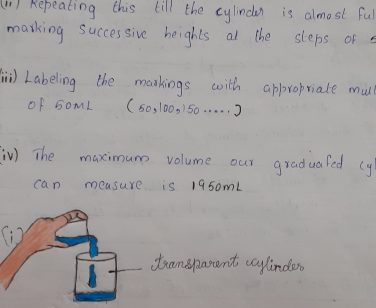 (ii) Repeating this till the cylinder is almost ful
marking successive heights at the steps of 5
(iii) Labeling the markings with appropriate mul
of 50mL (50,100,150.....)
(iv) The maximum volume our graduated cyl
can measure is 1950mL
(i)
transparent cylinder